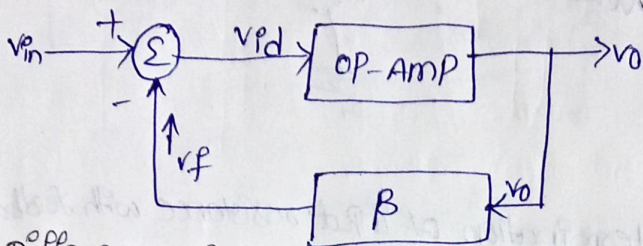 +
vin
Σ
vid
OP-AMP
vo
-
vf
β
vo